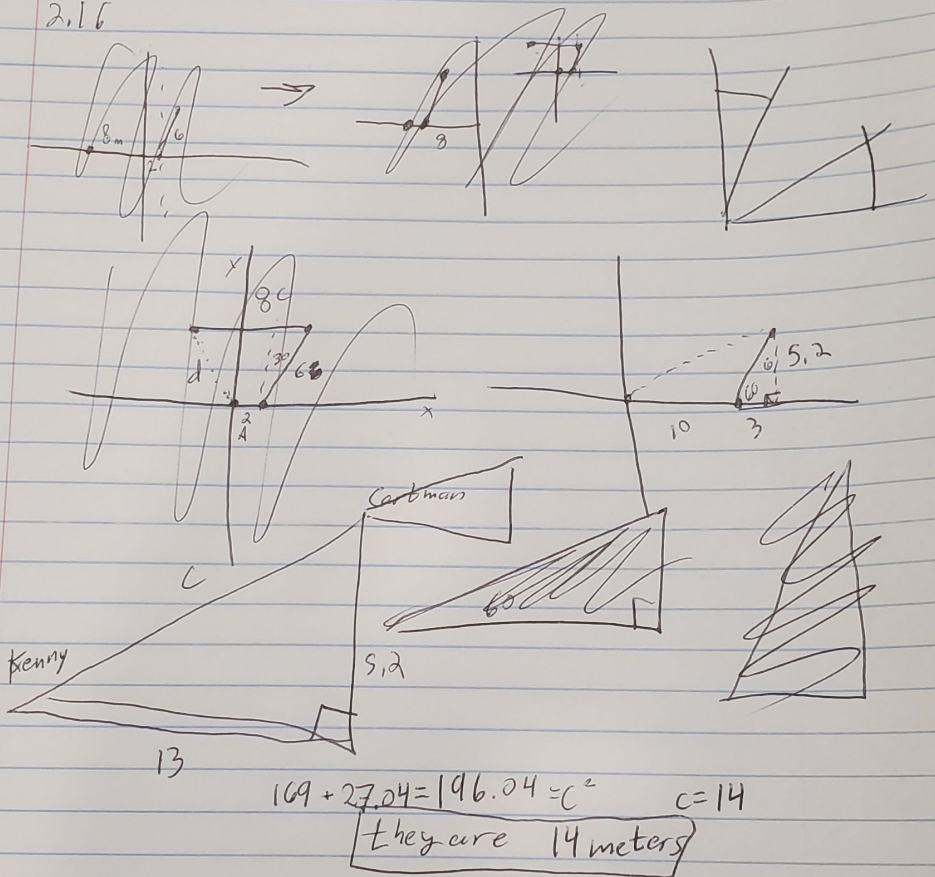 2.16
8m
6
8
y
8 C
30
d
6 B
2
A
x
C
60
5,2
10
3
Cartman
60
Kenny
5,2
13
169 + 27.04 = 196.04 = c² c = 14
they are 14 meters